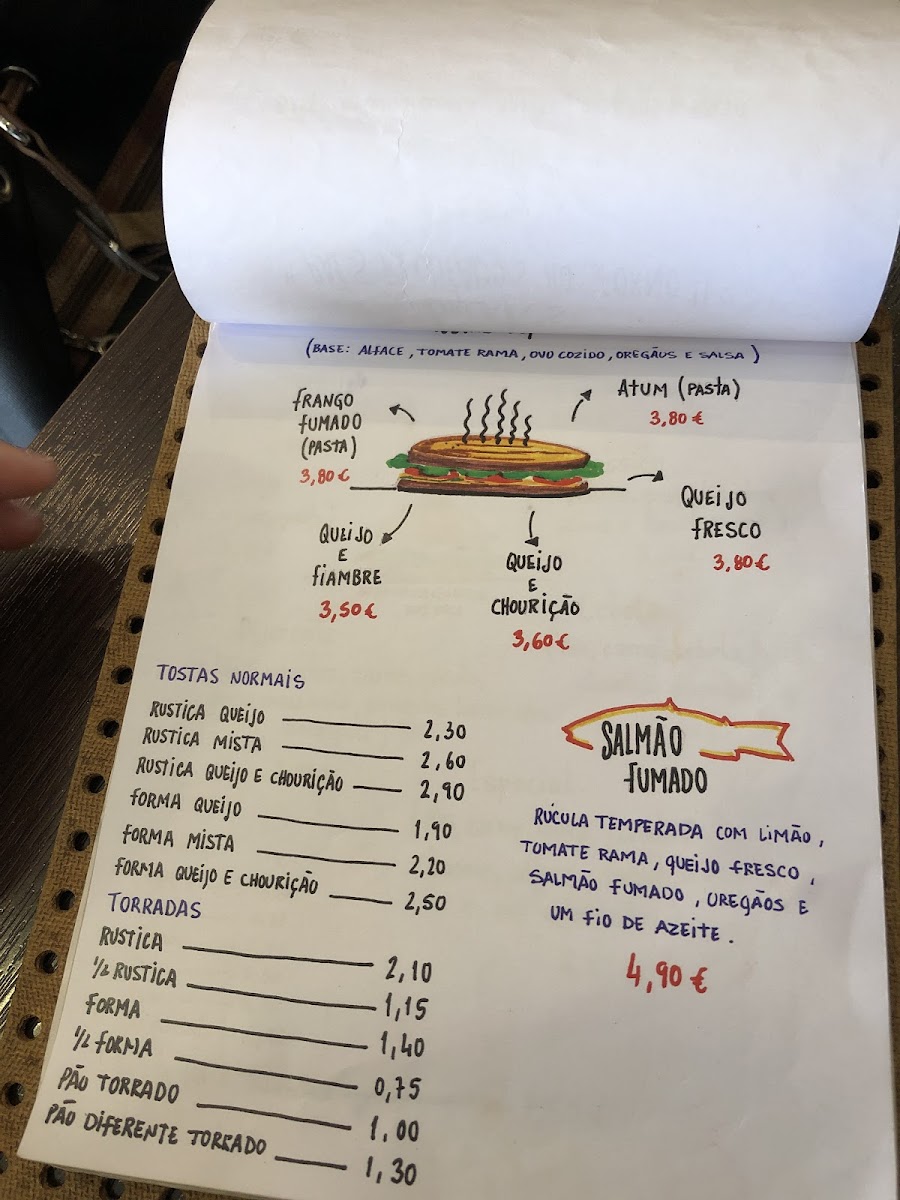 (BASE: ALFACE, TOMATE RAMA, OVO COZIDO, OREGÃOS E SALSA)
FRANGO
FUMADO
(PASTA)
3,80€
ATUM (PASTA)
3,80€
QUEIJO
FRESCO
3,80€
QUEIJO
E
FIAMBRE
3,50€
QUEIJO
E
CHOURIÇÃO
3,60€
TOSTAS NORMAIS
RUSTICA QUEIJO 2,30
RUSTICA MISTA 2,60
RUSTICA QUEIJO E CHOURIÇÃO 2,90
FORMA QUEIJO 1,90
FORMA MISTA 2,20
FORMA QUEIJO E CHOURIÇÃO 2,50
TORRADAS
RUSTICA 2,10
1/2 RUSTICA 1,15
FORMA 1,40
1/2 FORMA 0,75
PÃO TORRADO 1,00
PÃO DIFERENTE TORRADO 1,30
SALMÃO
FUMADO
RÚCULA TEMPERADA COM LIMÃO,
TOMATE RAMA, QUEIJO FRESCO,
SALMÃO FUMADO, OREGÃOS E
UM FIO DE AZEITE.
4,90€